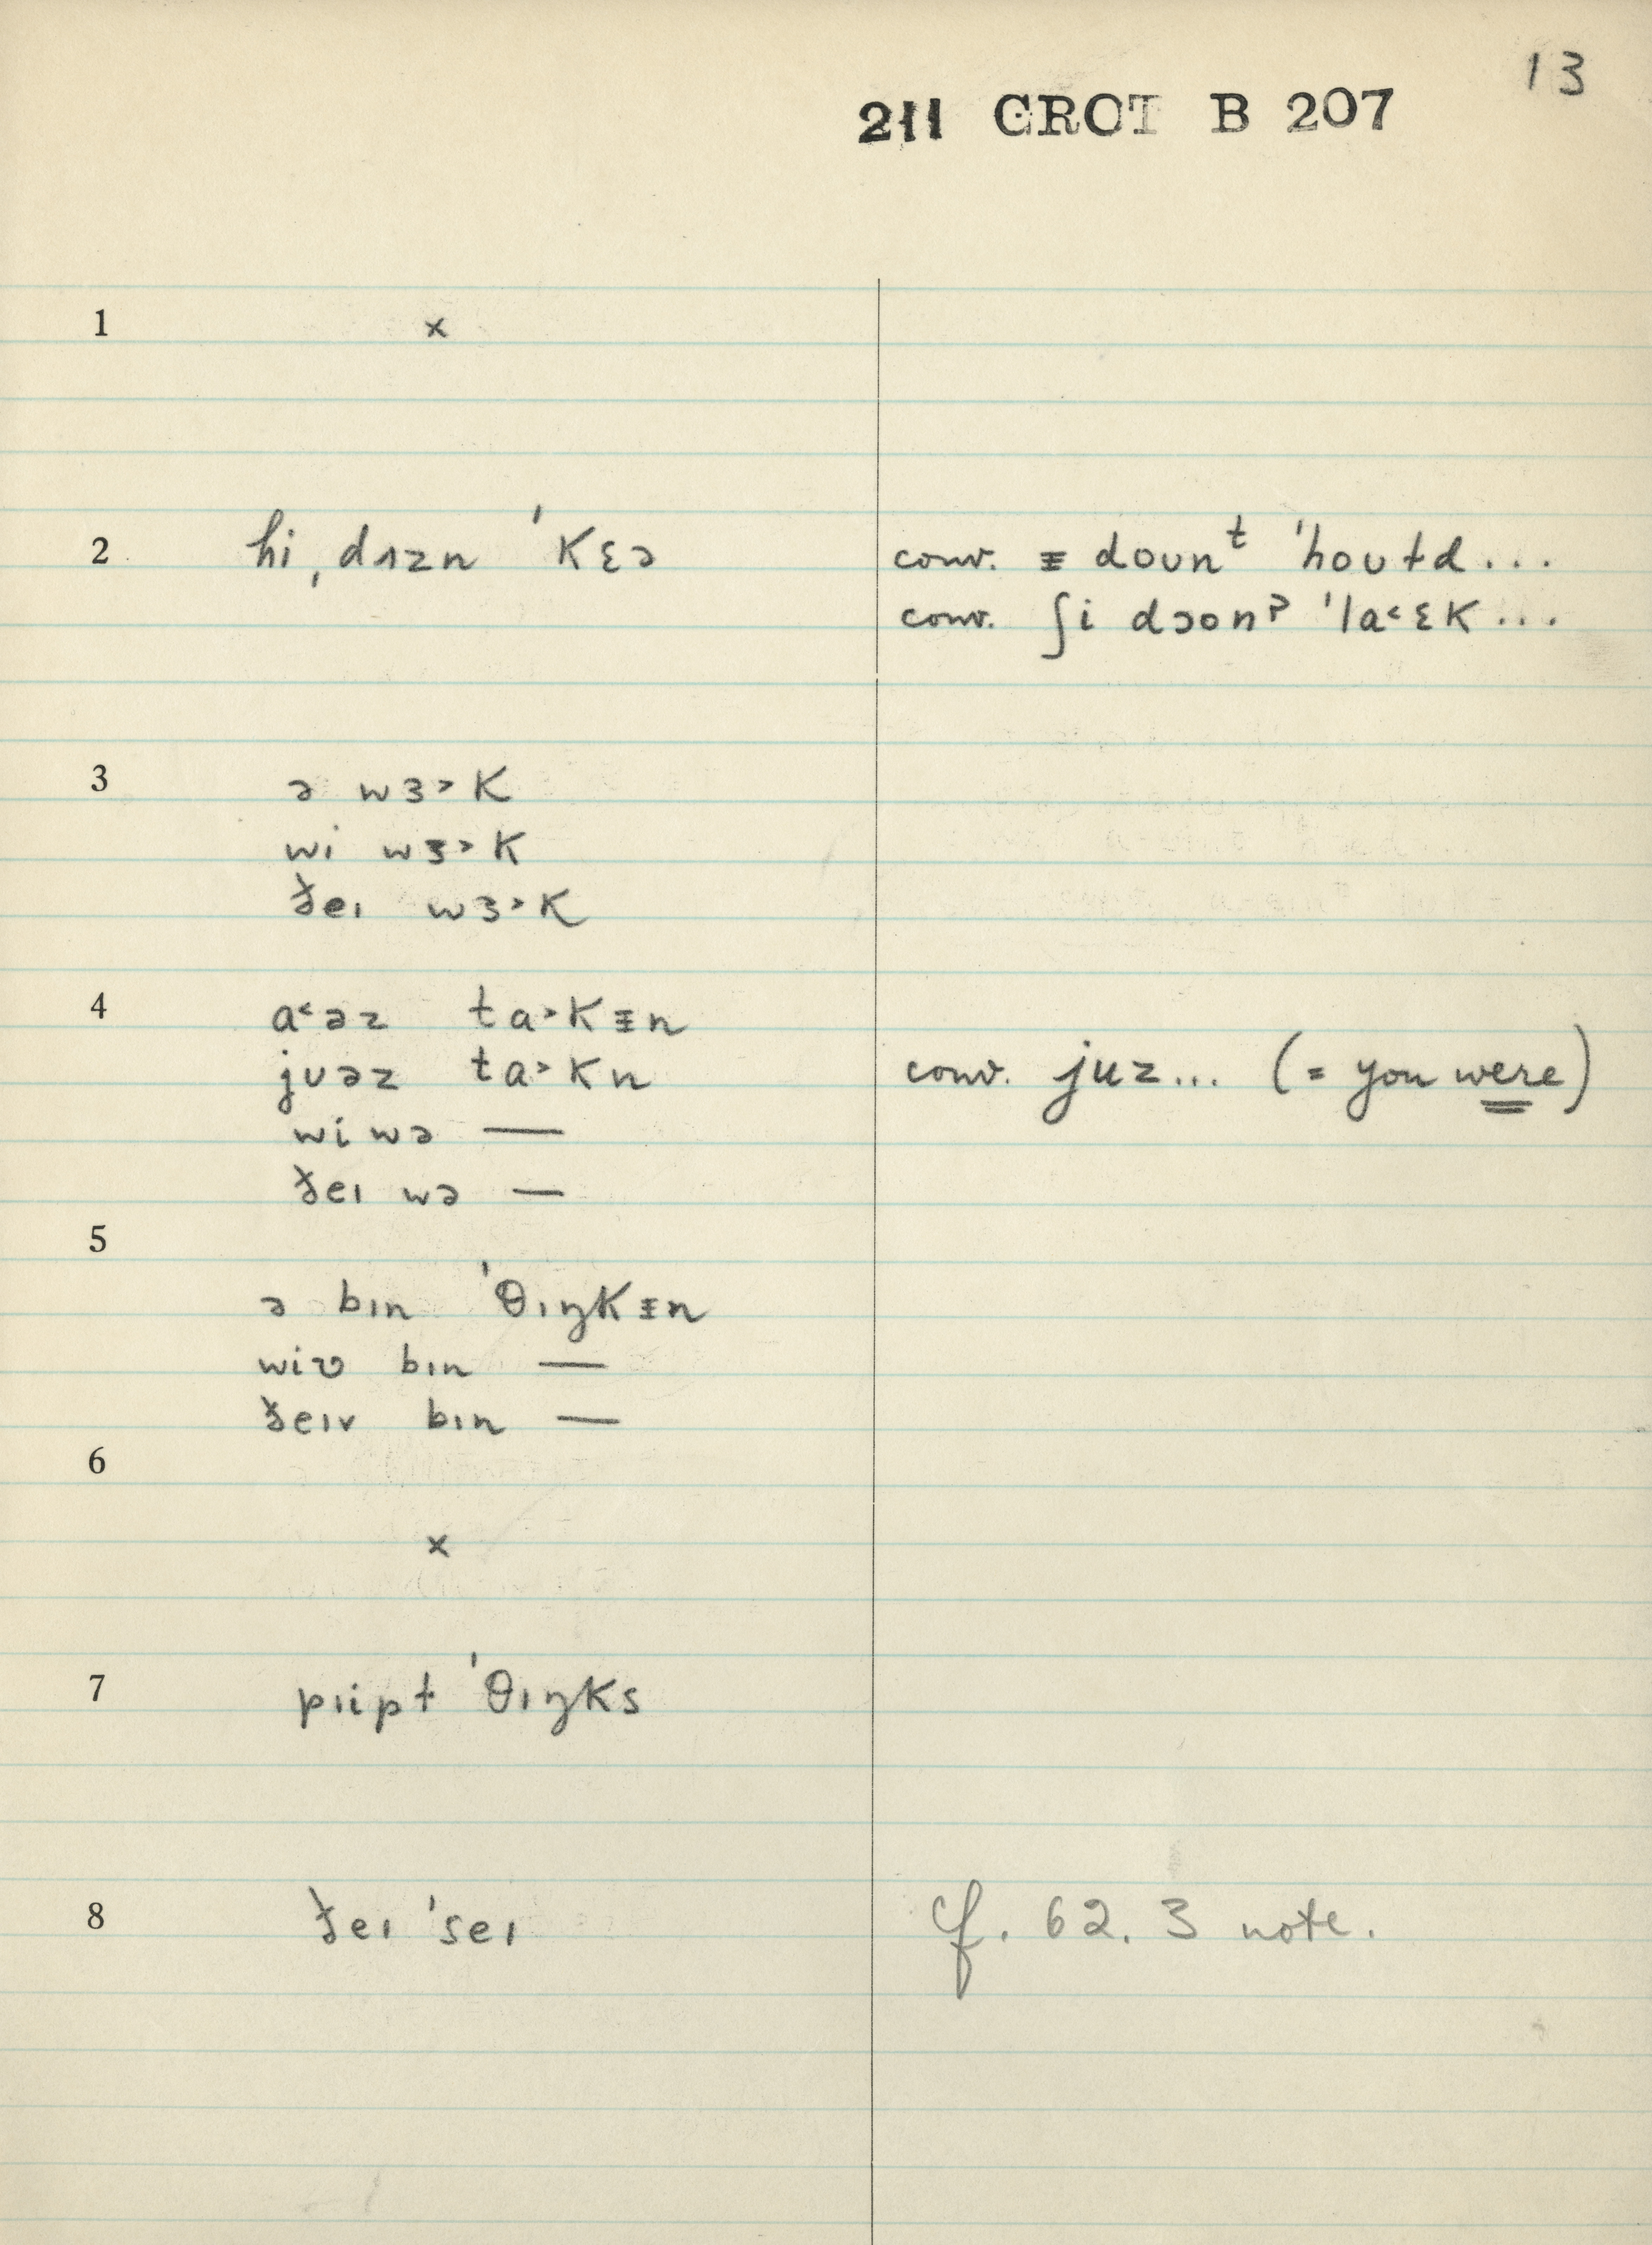 13
211 CROT B 207
1 ×
2 hi ˌdʌzn ˈkɛə
conv. ᵻ doʊnᵗ ˈhoʊɫd...
conv. ʃi dɔonˀ ˈla˂ɛk...
3 ə wɜ˃k
wi wɜ˃k
ðeɪ wɜ˃k
4 a˂əz ta˃kᵻn
jʊəz ta˃kn
conv. juz... (= you were)
wi wə —
ðeɪ wə —
5
ə bɪn ˈθɪŋkᵻn
wiʋ bɪn —
ðeɪv bɪn —
6
×
7 pɪipɫ ˈθɪŋks
8 ðeɪ ˈseɪ
cf. 62. 3 note.